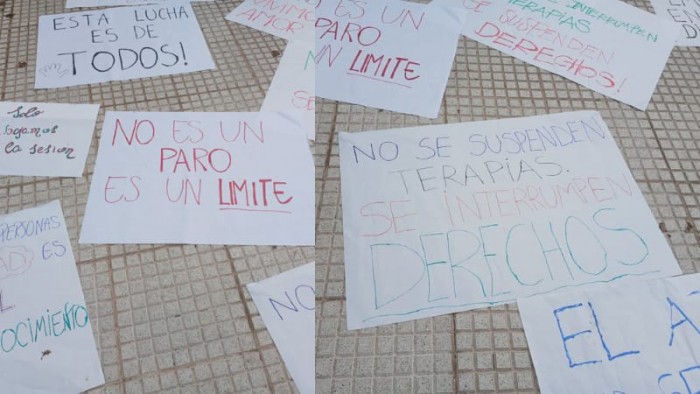 ESTA LUCHA
ES DE
TODOS!
AMOR
Solo
bajamos
la sesion
NO ES UN
PARO
ES UN LIMITE
PERSONAS
ES
OCIMIENTO
NO
NO ES UN
PARO
UN LIMITE
INTERRUMPEN
TERAPIAS
SE SUSPENDEN
DERECHOS!
NO SE SUSPENDEN
TERAPIAS.
SE INTERRUMPEN
DERECHOS
EL A
SE